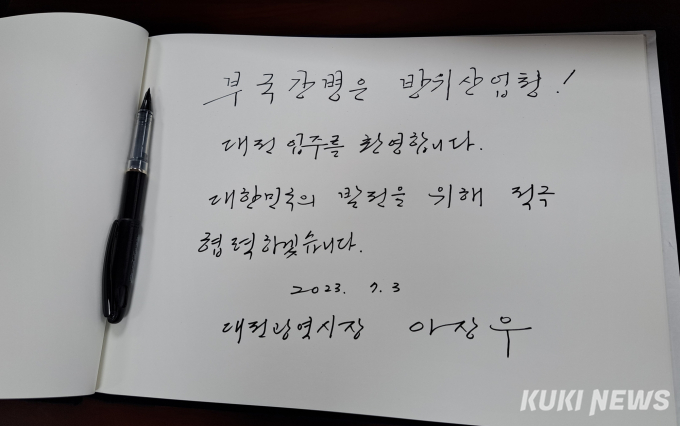 부국강병은 방위산업청!
대전 입주를 환영합니다.
대한민국의 발전을 위해 적극
협력하겠습니다.
2023. 7. 3
대전광역시장 이장우
KUKI NEWS